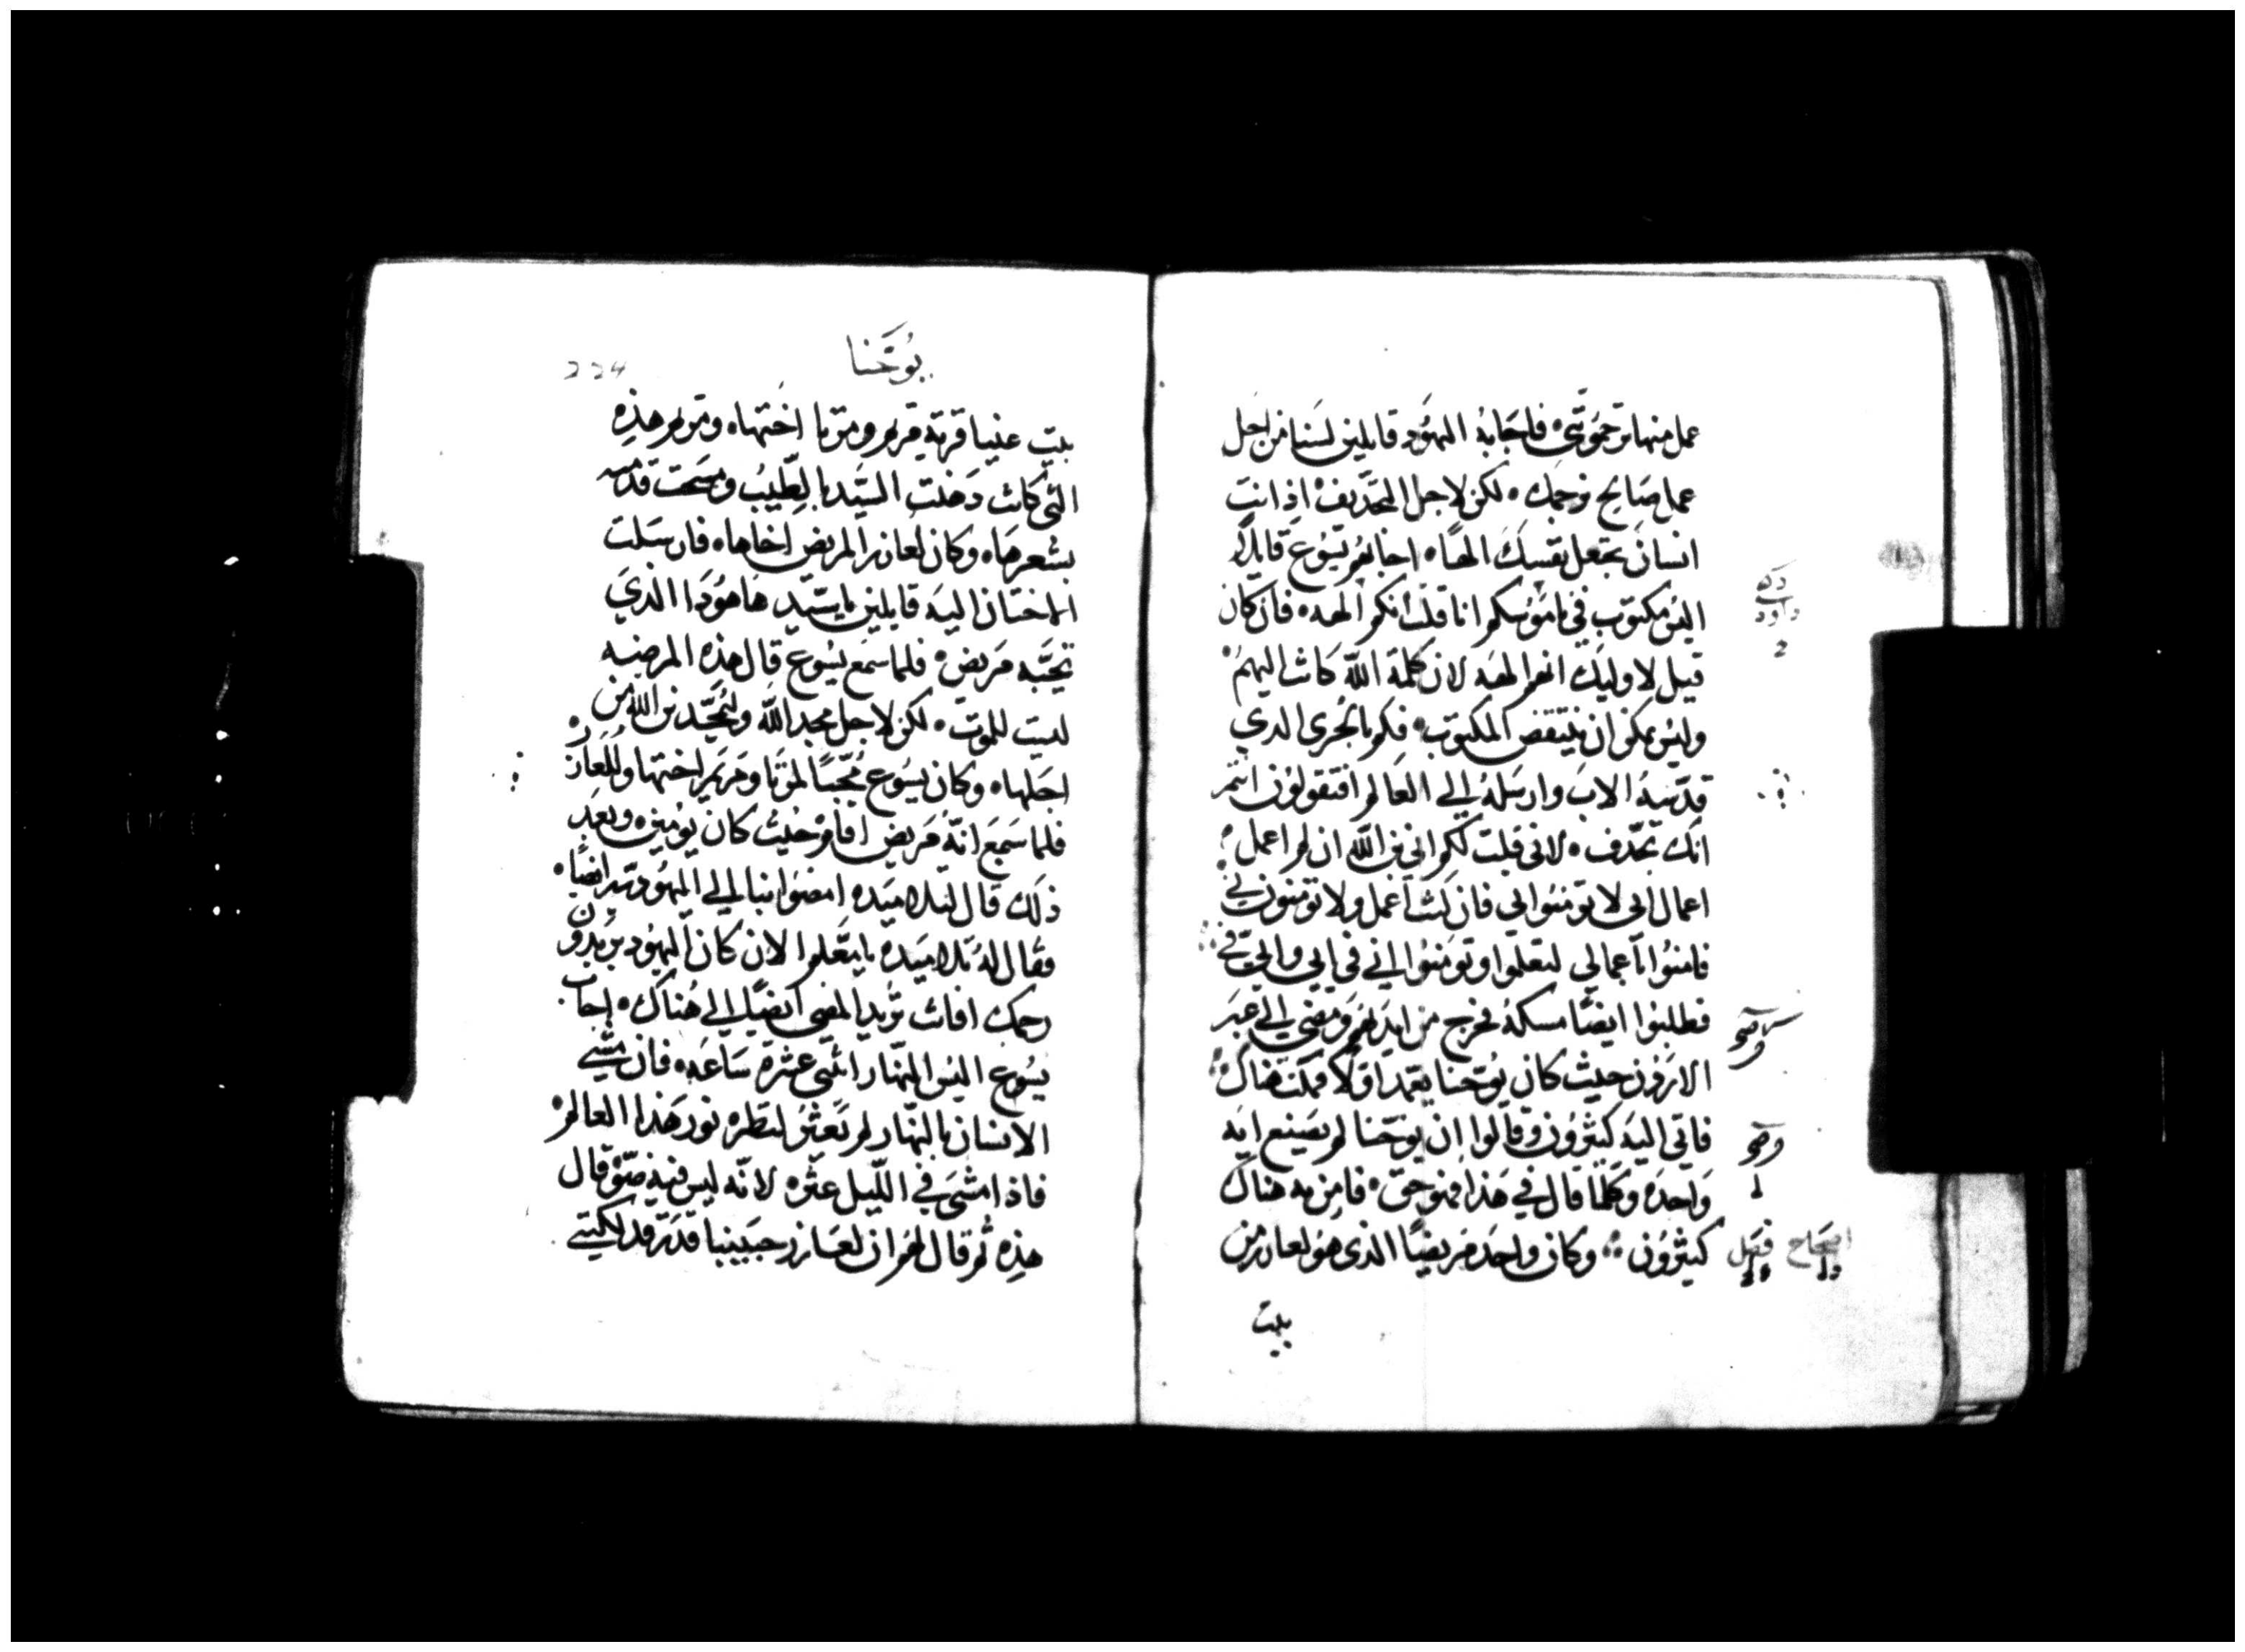 عمل منها ترجموني فاجابهُ اليهُود قايلين لسنا من اجل
عمل صَالح نرجمك لكن لاجل التجديف اذ انت
انسان تجعل نفسك الهًا اجابهُم يسُوع قايلًا
اليس مكتوب في نامُوسكم انا قلت انكم الهه فان كان
قيل لاوليك انهم الهه لان كلمة الله كانت اليهم
وليس يمكن ان ينتقض المكتوب فكم بالحرى الدي
قدسهُ الاب وارسَلهُ الي العَالم افتقولون انتم
انك تجدف لاني قلت لكم اني بن الله ان لم اعمل
اعمال ابي لا تومنوا بي فان كنت اعمل ولا تومنون بي
فامنوُا باعمالي لتعلموا وتومنوُا اني في ابي وابي في
فطلبوُا ايضًا مسكهُ فخرج من ايديهم ومضي الي عبر
الاردُن حيث كان يوُحنا يعمد اولًا فمكث هناك
فاتي اليه كثيروُن وقالوا ان يوحَنا لم يصنع ايه
وَاحده وكلما قال في هَذا فهو حَق فامن به هناك
كثيروُن وكان واحد مَريضًا الذي هوُ لعازر من
بيت
دكه
داود
فصل
اصحاح
يُوحَنا
224
بيت عنيا قرية مريم ومرتا اختها ومريم هذِه
التي كانت دَهنت السيّد بالطيبُ ومسَحَت قدميه
بشعرهَا وكان لعازر المريض اخاها فارسَلت
الاختان اليه قايلين ياسيّد هَاهوُدَا الذي
تحبّه مَريض فلما سمع يسُوع قال هذه المرضه
ليست للموت لكن لاجل مجد الله وليُمجّد بن الله من
اجَلها وكان يسوُع مُحبًا لمرتا ومَريم اختها وللعازر
فلما سَمع انّهُ مَريض اقام حيث كان يوُمين وبعد
ذلك قال لتلاميَده امضوا بنا الي اليهُوديه ايضًا
فقال لهُ تلاميَده يا مَعلم الان كان اليهُود يريدون
رجمك افانت تُريد المضي ايضًا الي هُناك اجاب
يسُوع اليسُ النهَار اثني عشرة سَاعَه فان مشي
الانسان بالنهَار لم يَعثُر لنظره نور هَذا العالم
فاذا مشىَ في الليل عثر لانّه ليس فيه ضوّ قال
هذِه ثم قال لهُم ان لعَازر حبيبنا قد رقد لكنني